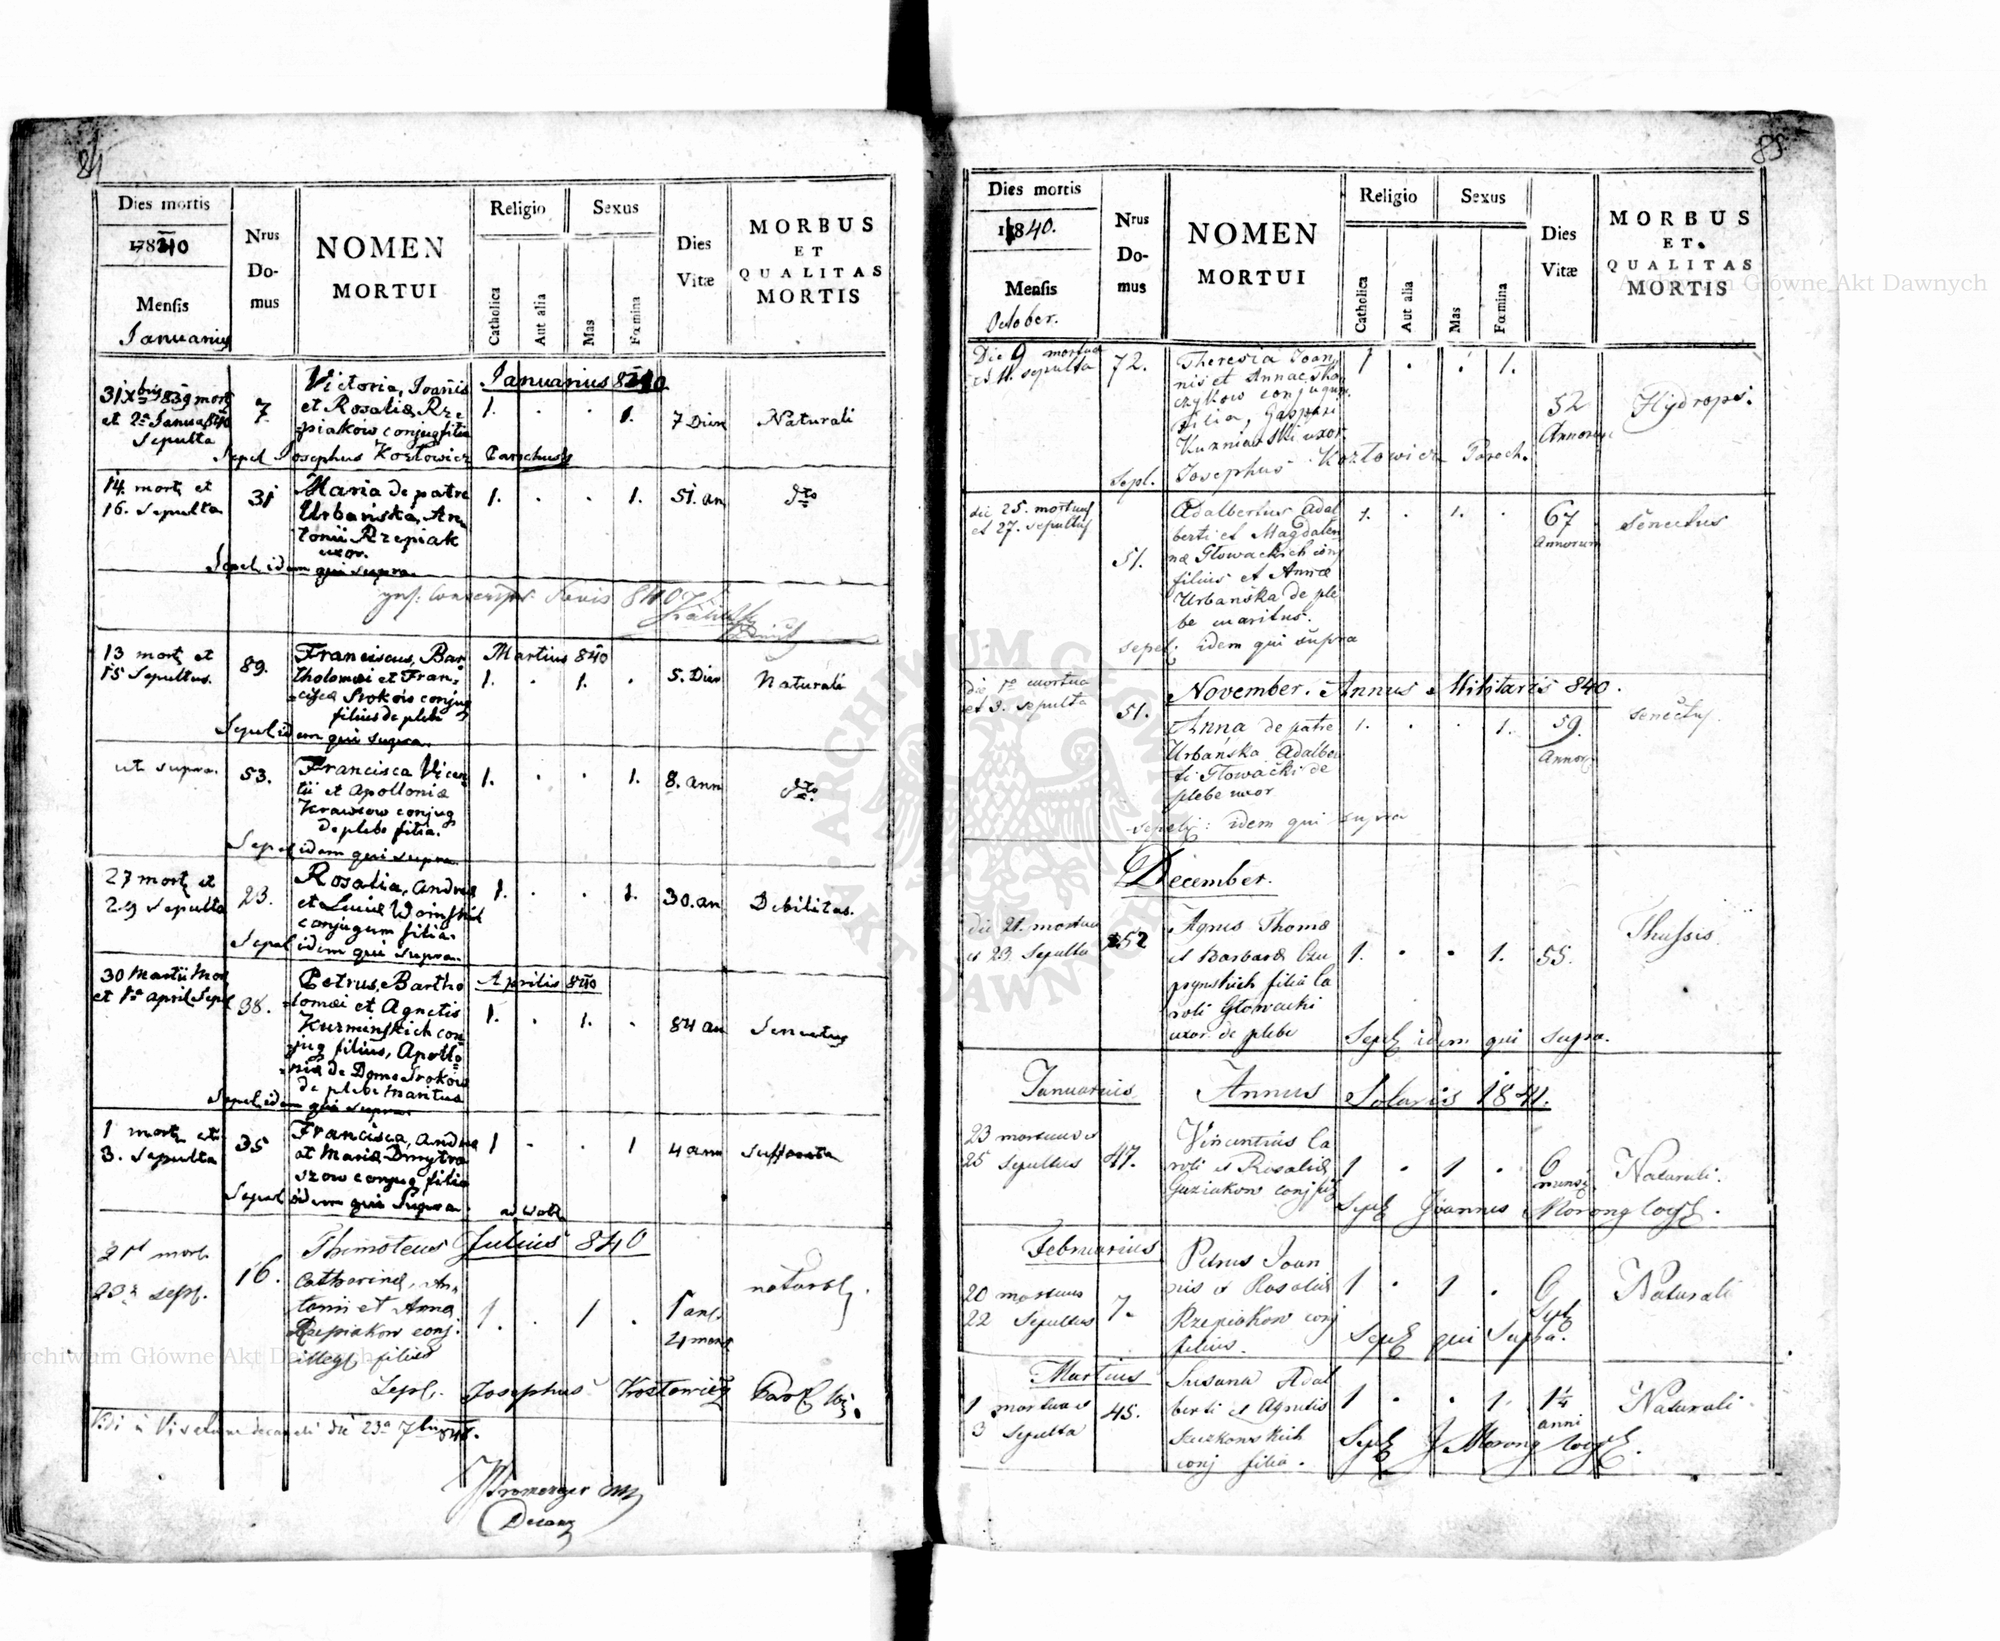 84
Dies mortis
178 840
Mensis
Januarius
Nrus
Do-
mus
NOMEN
MORTUI
Religio
Catholica
Aut alia
Sexus
Mas
Fœmina
Dies
Vitæ
MORBUS
ET
QUALITAS
MORTIS
Januarius 840
31 Xbris 839 mort
et 2a Januar 840
Sepulta
7
Victoria, Joannis
et Rosaliæ Rze-
piakow conjug filia
1. . . 1.
7 Dier
Naturali
Sepel Josephus Kozłowicz Parochus
14. mort et
16. Sepulta
31
Maria de patre
Urbańska, An-
tonii Rzepiak
uxor.
1. . . 1.
51. an
dto
Sepel idem qui supra.
840
13 mort et
15 Sepultus.
89.
Franciscus, Bar-
tholomæi et Fran-
ciscæ Srokow conjug
filius de plebe
Martius 840
1. . 1. .
5. Dier
Naturali
Sepel idem qui supra.
ut supra.
53.
Francisca Vicen-
tii et Apolloniæ
Krawcow conjug
de plebe filia.
1. . . 1.
8. ann
dto.
Sepel idem qui supra.
27 mort et
29 Sepulta
23.
Rosalia, Andreæ
et Luciæ
conjugum filia.
1. . . 1.
30. an
Debilitas.
Sepel idem qui supra.
30 Martii Mor
et 1a April Sepul
38.
Petrus, Bartho
lomæi et Agnetis
Kuzminskich con
jug filius, Apollo-
niæ de Domo Srokow
de plebe maritus
Aprilis 840
1. . 1. .
84 an
Senectus
Sepel idem qui supra
1 mort et
3. Sepulta
35
Francisca, Andreæ
et Mariæ Dmytra
szow conjug filia
1 . . 1
4 ann
Suffocata
Sepel idem qui Supra.
Julius 840
21 mort.
23a sepl.
16.
Thimoteus
Catharinæ, An-
tonii et Anna
Rzepiakow conj.
illegl filius
1. . 1 .
1 an.
4 mens
natural.
Sepl. Josephus Kozłowicz
Vidi in Visitatione decanali die 23a 7bris 840.
Decanq
85
Dies mortis
1840.
Mensis
October.
Nrus
Do-
mus
NOMEN
MORTUI
Religio
Catholica
Aut alia
Sexus
Mas
Fœmina
Dies
Vitæ
MORBUS
ET.
QUALITAS
MORTIS
Die 9 mortua
et 11. sepulta
72.
Theresia Joan
nis et Annae
conjugum
filia, Gaspari
Kuzniarski uxor
1 . . 1.
52
Annorum
Hydrops.
Sepl. Josephus Kozłowicz Paroch.
die 25. mortuus
et 27. sepultus
51.
Adalbertus Adal
berti et Magdalen-
næ Głowackich conj
filius et Annæ
Urbańska de ple
be maritus.
1. . 1. .
67
Annorum
Senectus
sepel: idem qui supra
November. Annus Militaris 840.
die 1a mortua
et 3. sepulta
51.
Anna de patre
Urbańska Adalber
ti Głowacki de
plebe uxor
1. . . 1.
59.
Annor
senectus.
sepeli: idem qui supra
December.
die 21. mortua
et 23. Sepulta
52
Agnes Thomæ
et Barbaræ Czu
prynskich filia Ca
roli Głowacki
uxor de plebe
1. . . 1.
55.
Thussis
Sepel idem qui supra.
Januarius Annus Solaris 1841.
23 mortuus et
25 Sepultus
47.
Vincentius Ca
roli et Rosaliæ
Guziakow conj fil
1 . 1 .
6
mensi
Naturali.
Sepel Joannes Morong
Februarius
20 mortuus
22 Sepultus
7.
Petrus Joan
nis et Rosaliæ
Rzepiakow conj
filius.
1 . 1 .
6
Naturali
Sepel qui Supra.
Martius
1 mortua et
3 Sepulta
45.
Susana Adal
berti et Agnetis
Szuzkowskich
conj filia.
1 . . 1.
1¼
anni
Naturali.
Sepel J Morong
Archiwum Główne Akt Dawnych
Archiwum Główne Akt Dawnych
ARCHIWUM GŁÓWNE AKT DAWNYCH